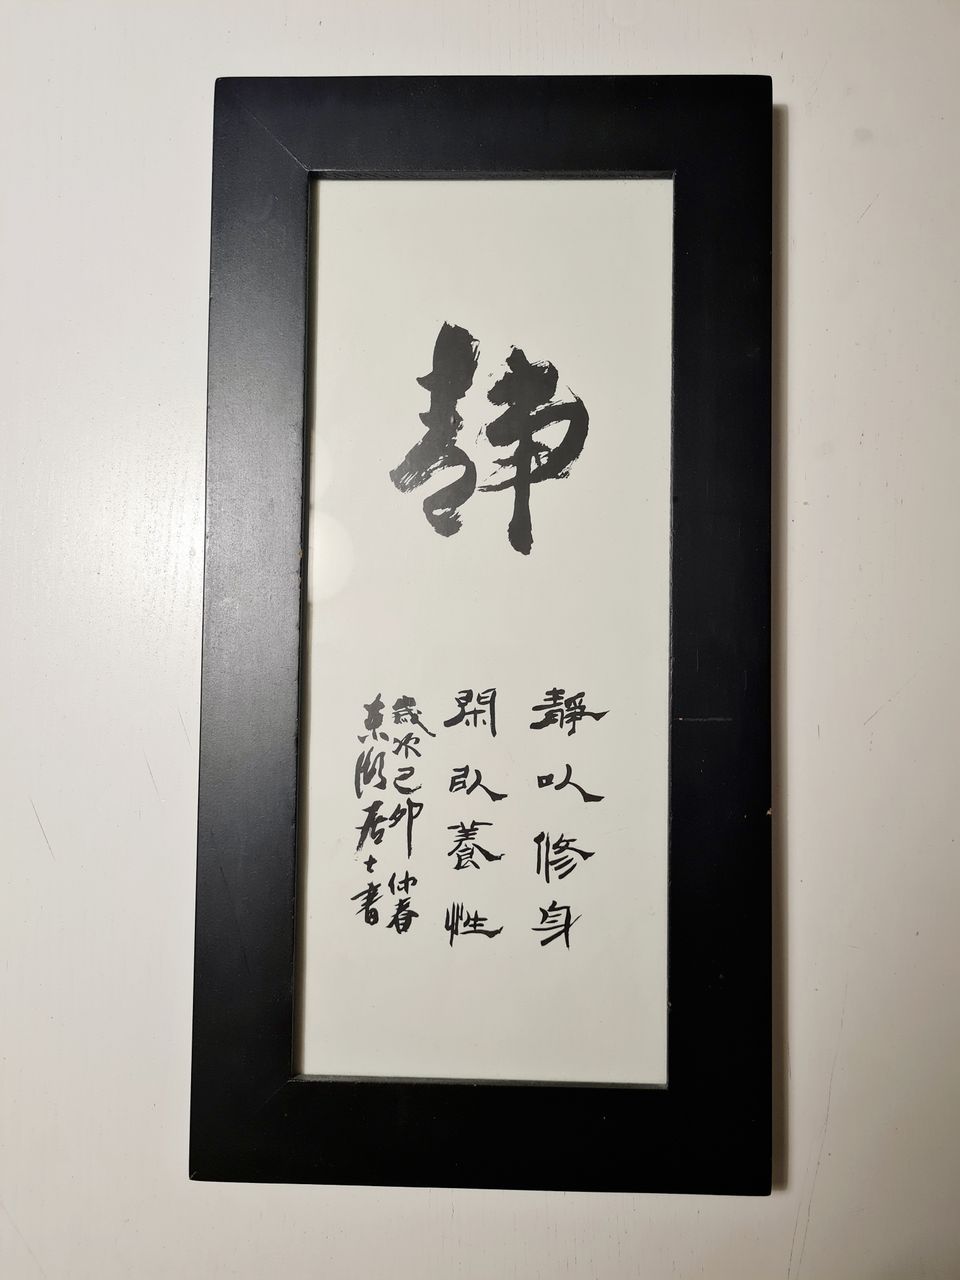 靜
靜以修身
閑臥養性
歲次己卯仲春
東湖居士書